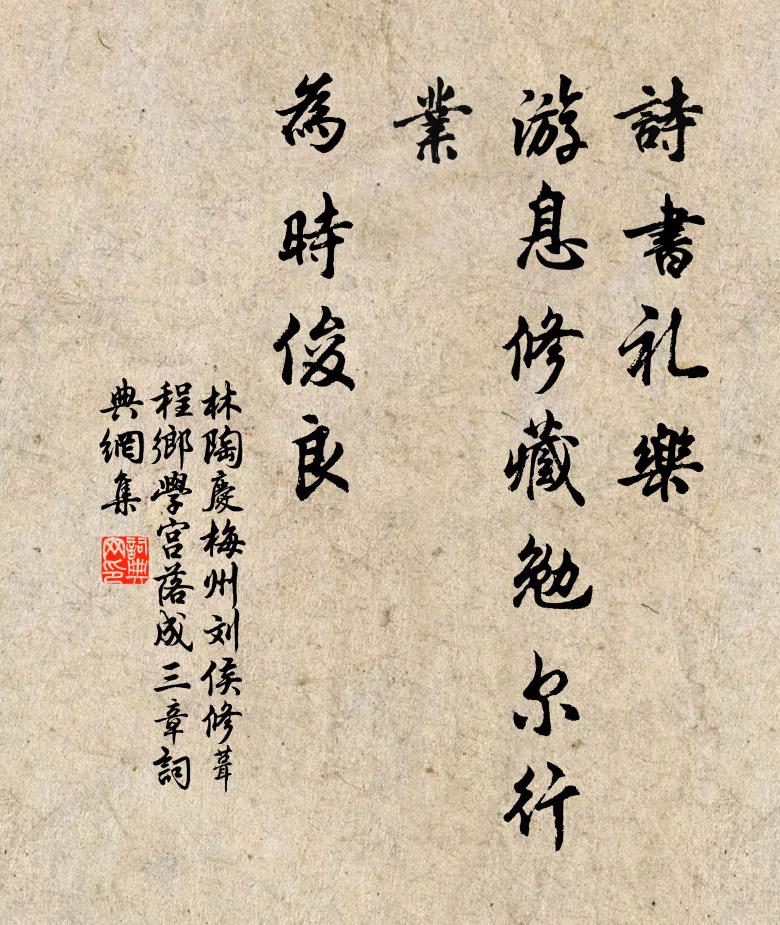 詩書礼樂
游息修藏勉尔行
業
為時俊良
林陶慶梅州刘侯修葺
程鄉學宫落成三章詞
典網集
詞典
网印